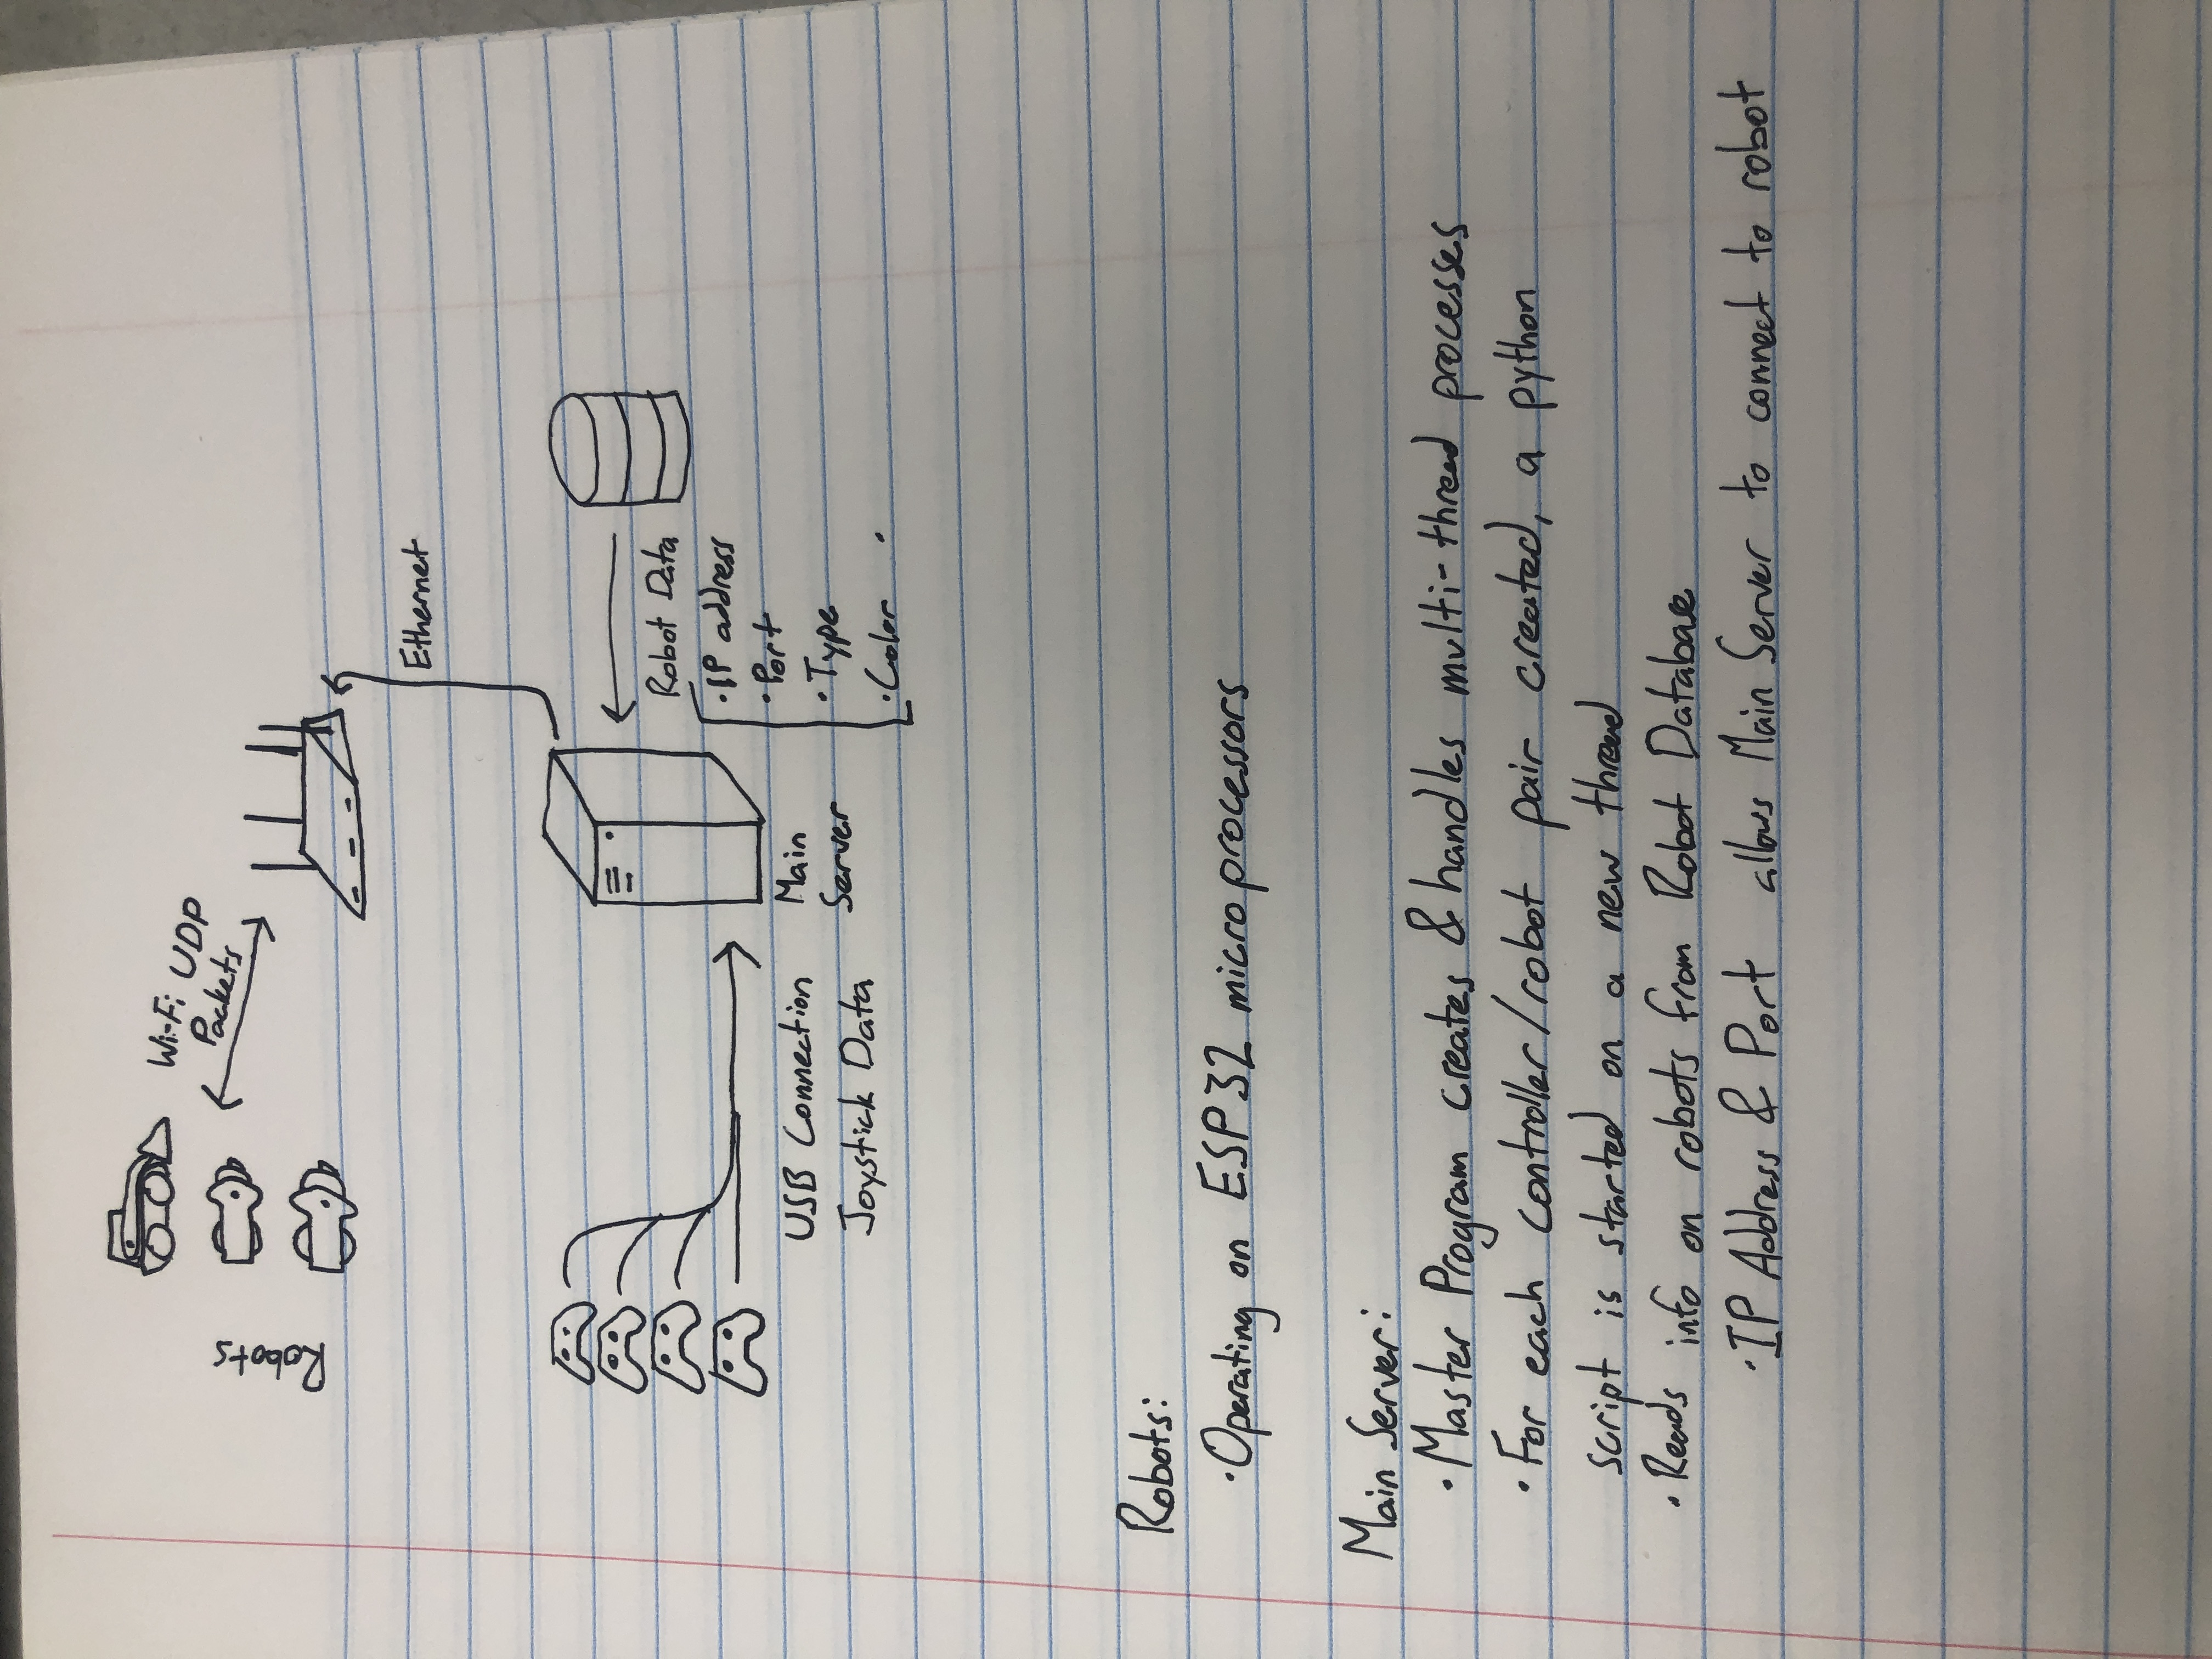 Wi-Fi UDP
Packets
Robots
Ethernet
Robot Data
·IP address
·Port
·Type
·Color
USB Connection
Joystick Data
Main
Server
Robots:
·Operating on ESP32 microprocessors
Main Server:
·Master Program creates & handles multi-thread processes
·For each controller/robot pair created, a python
script is started on a new thread
·Reads info on robots from Robot Database
·IP Address & Port allows Main Server to connect to robot